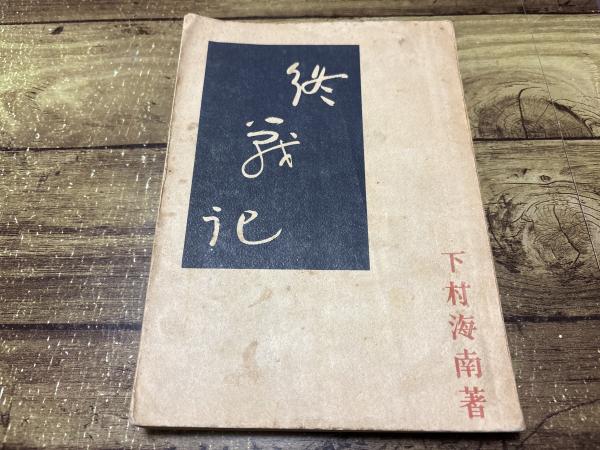 終戦記
下村海南著